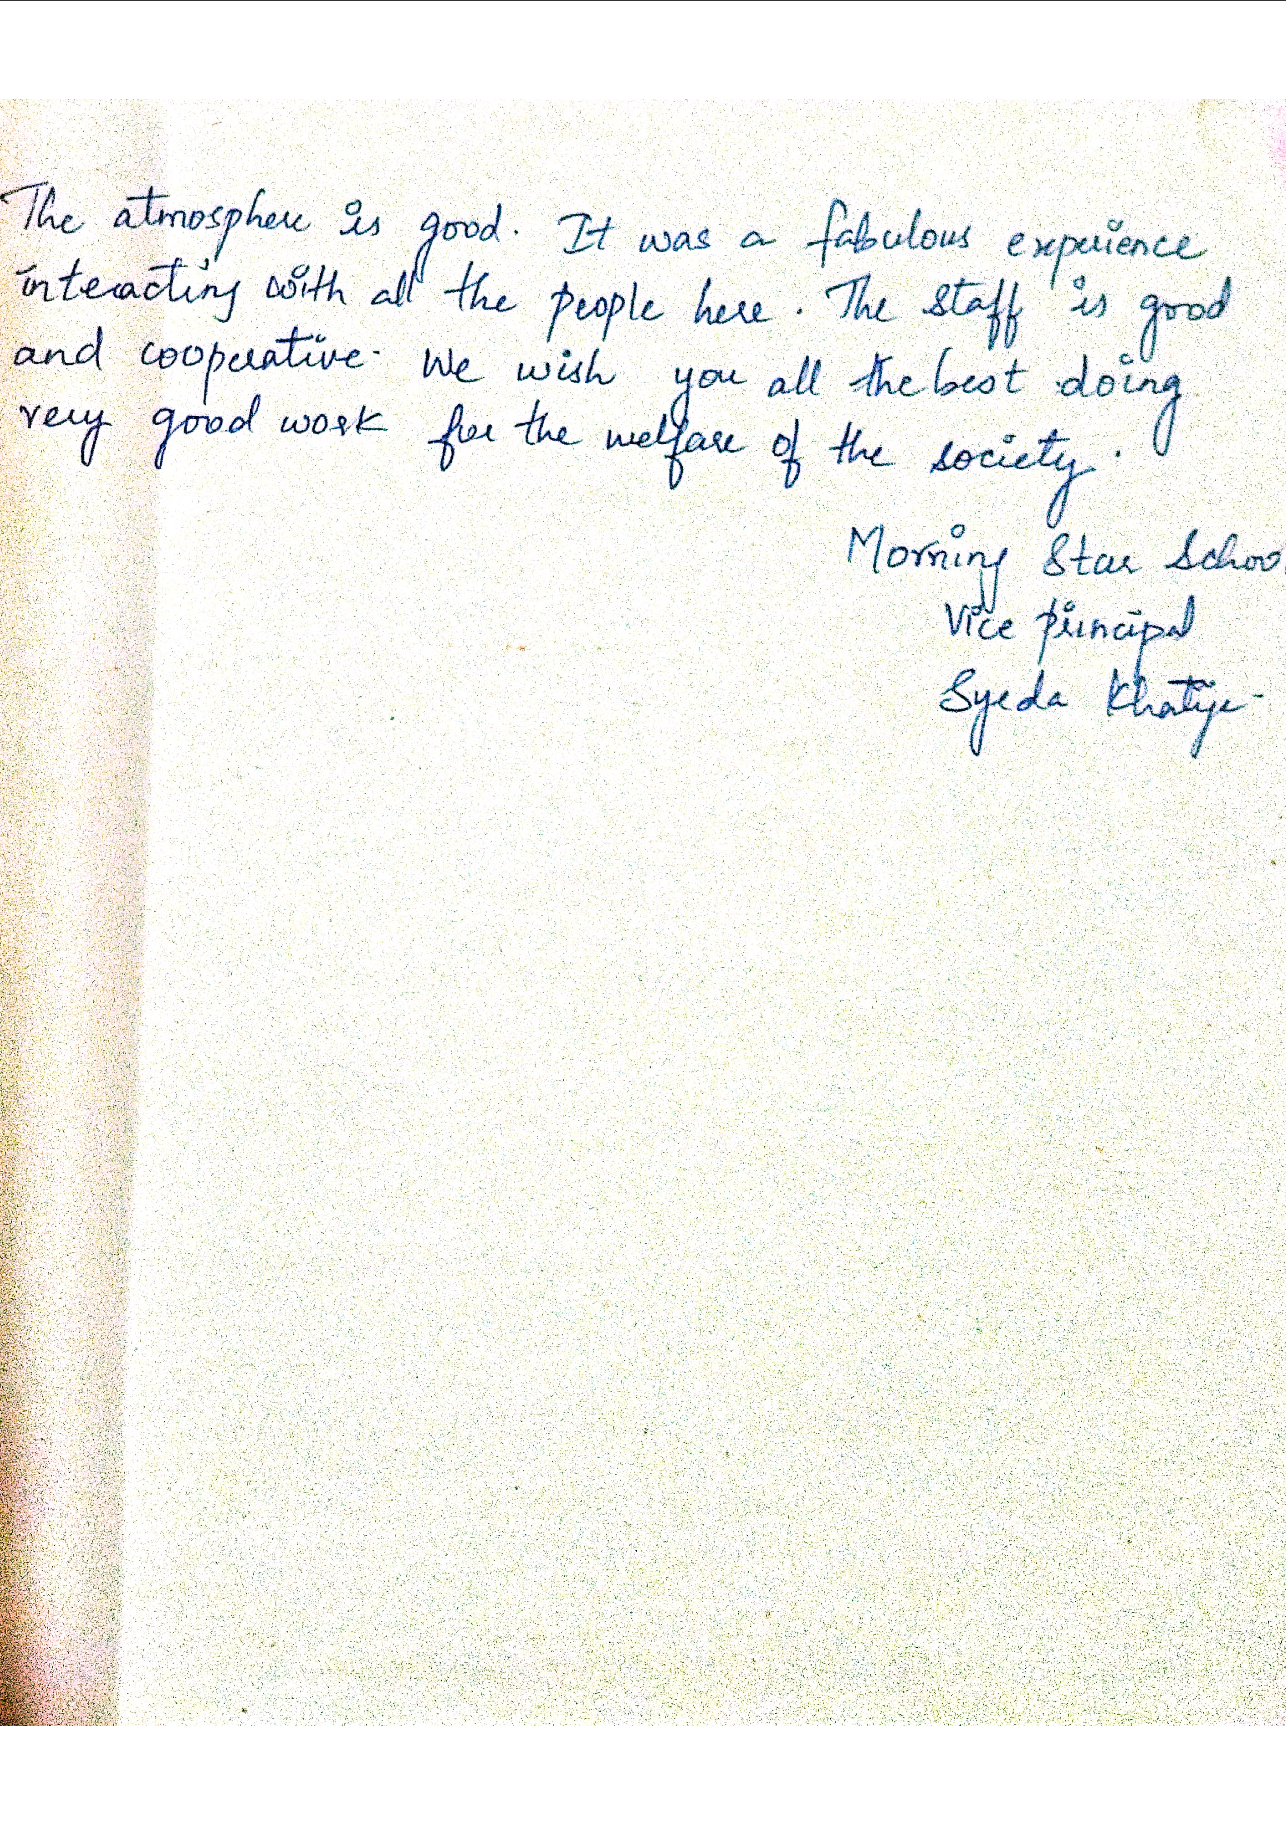 The atmosphere is good. It was a fabulous experience
interacting with all the people here. The staff is good
and cooperative. We wish you all the best doing
very good work for the welfare of the society.
Morning Star School
Vice principal
Syeda